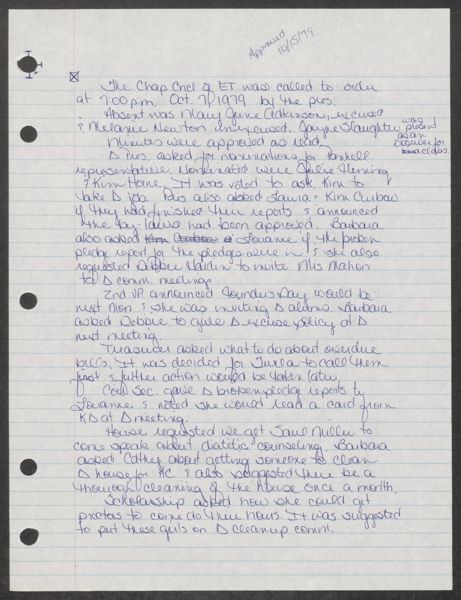 Approved
10/15/79
The Chap Cncl of ET was called to order
at 7:00 p.m. Oct. 7, 1979 by the pres.
Absent was Mary June Atkinson, excused
& Melanie Newton unexcused. Jayne Slaughter was present as an observer for class.
Minutes were approved as read.
Δ pres. asked for nominations for
representative. Nominated were Julie Fleming
& Kim Horne. It was voted to ask Kim to
take Δ job. Pres also asked Laura & Kim
if they had finished their reports & announced
the by-laws had been approved. Barbara
also asked Lorianne if the broken
pledge report for the pledges were in & she also
requested Debbie Harden to invite Mrs Mahon
to Δ comm. meeting.
2nd VP announced Founder's Day would be
next Mon & she was inviting Δ alums. Barbara
asked Debbie to give Δ excuse policy at Δ
next meeting.
Treasurer asked what to do about overdue
bills. It was decided for Turla to call them
first & further action would be taken later.
Corr Sec. gave Δ broken pledge reports to
Lorianne & noted she would read a card from
KΔ at Δ meeting.
House requested we get Saul Miller to
come speak about diatetic counseling. Barbara
asked Cathy about getting someone to clean
Δ house for HC. & also suggested there be a
thorough cleaning of the house once a month.
Scholarship asked how she could get
proctors to come do their hours. It was suggested
to put these girls on Δ cleanup comm.